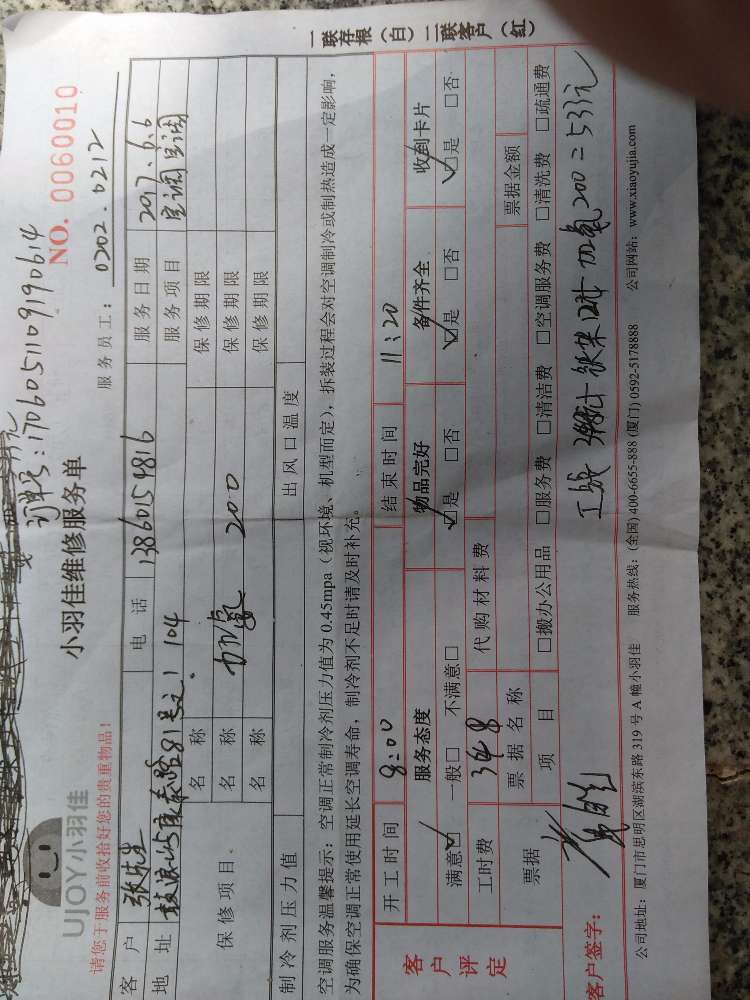 一联存根（白）二联客户（红）
订单号：1706051109190614
UJOY小羽佳
小羽佳维修服务单
NO. 0060010
请您于服务前收拾好您的贵重物品！
服务员工：0202.0212
客户 张先生 电话 13860159816 服务日期 2017.6.6
地址 81号之1 104 服务项目 空调
保修项目 名称 保修期限
名称 加氟 200 保修期限
名称 保修期限
制冷剂压力值 出风口温度
空调服务温馨提示：空调正常制冷剂压力值为0.45mpa（视环境、机型而定），拆装过程会对空调制冷或制热造成一定影响，
为确保空调正常使用延长空调寿命，制冷剂不足时请及时补充。
客户评定 开工时间 8:00 结束时间 11:20
服务态度 物品完好 备件齐全 收到卡片
满意☑ 一般□ 不满意□ ☑是 □否 ☑是 □否 ☑是 □否
工时费 348 代购材料费
票据 票据名称 票据金额
项目 □搬办公用品 □服务费 □清洁费 □空调服务费 □清洗费 □疏通费
客户签字： 加氟200=533元
公司地址：厦门市思明区湖滨东路319号A幢小羽佳 服务热线：(全国)400-6655-888(厦门)0592-5178888 公司网站：www.xiaoyujia.com